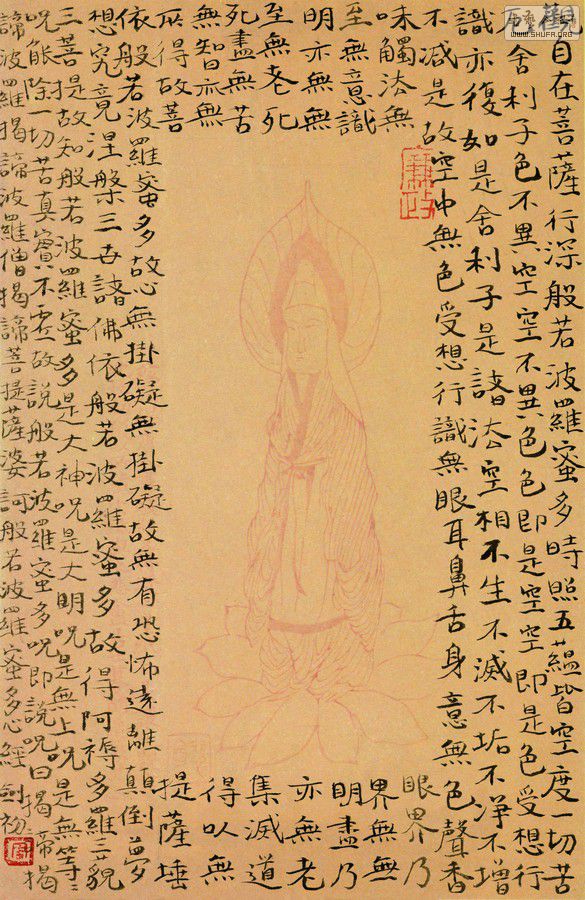 自在菩薩行深般若波羅蜜多時照五蘊皆空度一切苦
厄舍利子色不異空空不異色色即是空空即是色受想行
識亦復如是舍利子是諸法空相不生不滅不垢不淨不增
不減是故空中無色受想行識無眼耳鼻舌身意無色聲香
味觸法無眼界乃
至無意識界無無
明亦無無明盡乃
至無老死亦無老
死盡無苦集滅道
無智亦無得以無
所得故菩提薩埵
依般若波羅蜜多故心無掛礙無掛礙故無有恐怖遠離顛倒夢
想究竟涅槃三世諸佛依般若波羅蜜多故得阿褥多羅三藐
三菩提故知般若波羅蜜多是大神咒是大明咒是無上咒是無等〻
咒能除一切苦真實不虛故說般若波羅蜜多咒即說咒曰揭帝揭
諦波羅揭諦波羅僧揭諦菩提薩婆訶般若波羅蜜多心經 劍初
WWW.SHUFA.ORG